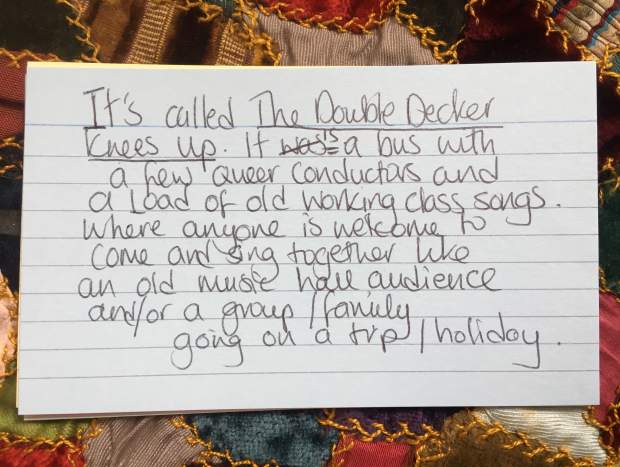 It's called The Double Decker
Knees Up. It is a bus with
a few queer conductors and
a Load of old working class songs.
Where anyone is welcome to
come and sing together like
an old music hall audience
and/or a group / family
going on a trip / holiday.